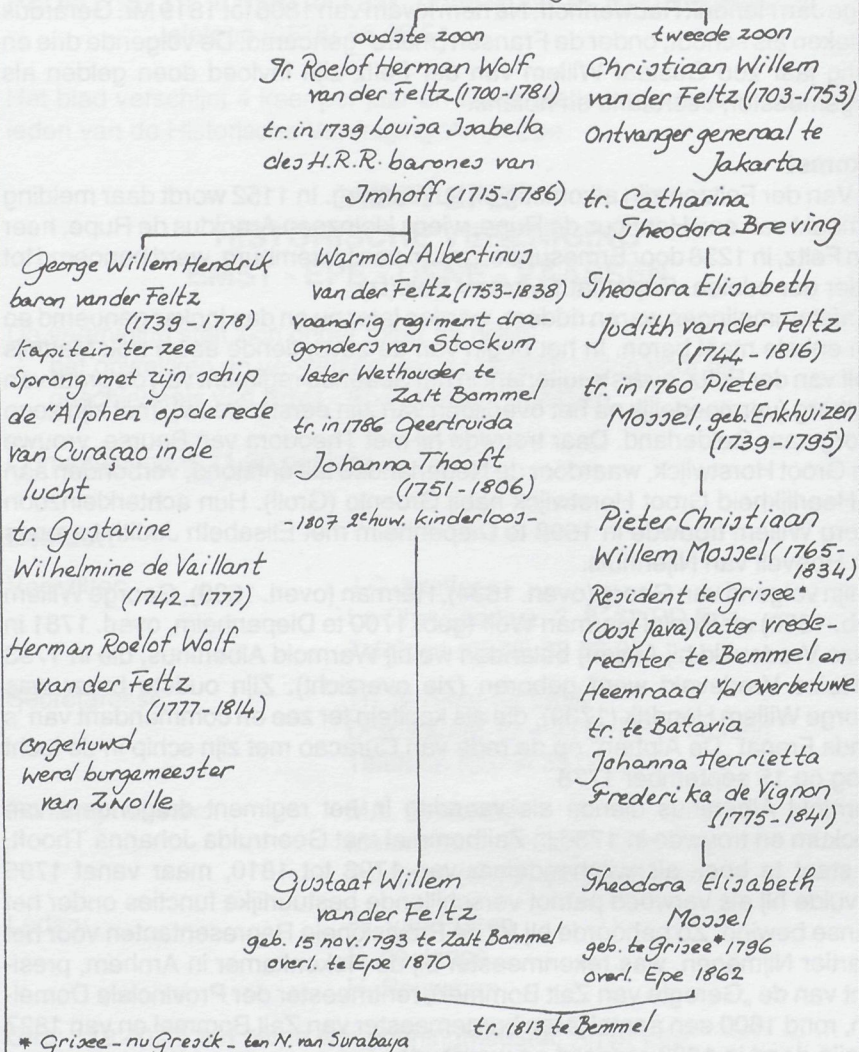 oudste zoon
Jr. Roelof Herman Wolf
van der Feltz (1700-1781)
tr. in 1739 Louisa Isabella
des H.R.R. barones van
Imhoff (1715-1786)
tweede zoon
Christiaan Willem
van der Feltz (1703-1753)
Ontvanger generaal te
Jakarta
tr. Catharina
Theodora Breving
George Willem Hendrik
baron van der Feltz
(1739-1778)
Kapitein ter zee
Sprong met zijn schip
de "Alphen" op de rede
van Curacao in de
lucht.
tr. Gustavine
Wilhelmine de Vaillant
(1742-1777)
Herman Roelof Wolf
van der Feltz
(1777-1814)
ongehuwd
werd burgemeester
van Zwolle
Warmold Albertinus
van der Feltz (1753-1838)
vaandrig regiment dra-
gonders van Stockum
later Wethouder te
Zalt Bommel
tr. in 1786 Geertruida
Johanna Thooft
(1751-1806)
-1807 2e huw. kinderloos
Theodora Elisabeth
Judith van der Feltz
(1744-1816)
tr. in 1760 Pieter
Mossel, geb. Enkhuizen
(1739-1795)
Pieter Christiaan
Willem Mossel (1765-
1834)
Resident te Grisee*
(Oost Java) later vrede-
rechter te Bemmel en
Heemraad v/d Overbetuwe
tr. te Batavia
Johanna Henrietta
Frederika de Vignon
(1775-1841)
Gustaaf Willem
van der Feltz
geb. 15 nov. 1793 te Zalt Bommel
overl. te Epe 1870
Theodora Elisabeth
Mossel
geb. te Grisee* 1796
overl. Epe 1862
tr. 1813 te Bemmel
* Grisee - nu Gresik - ten N. van Surabaya